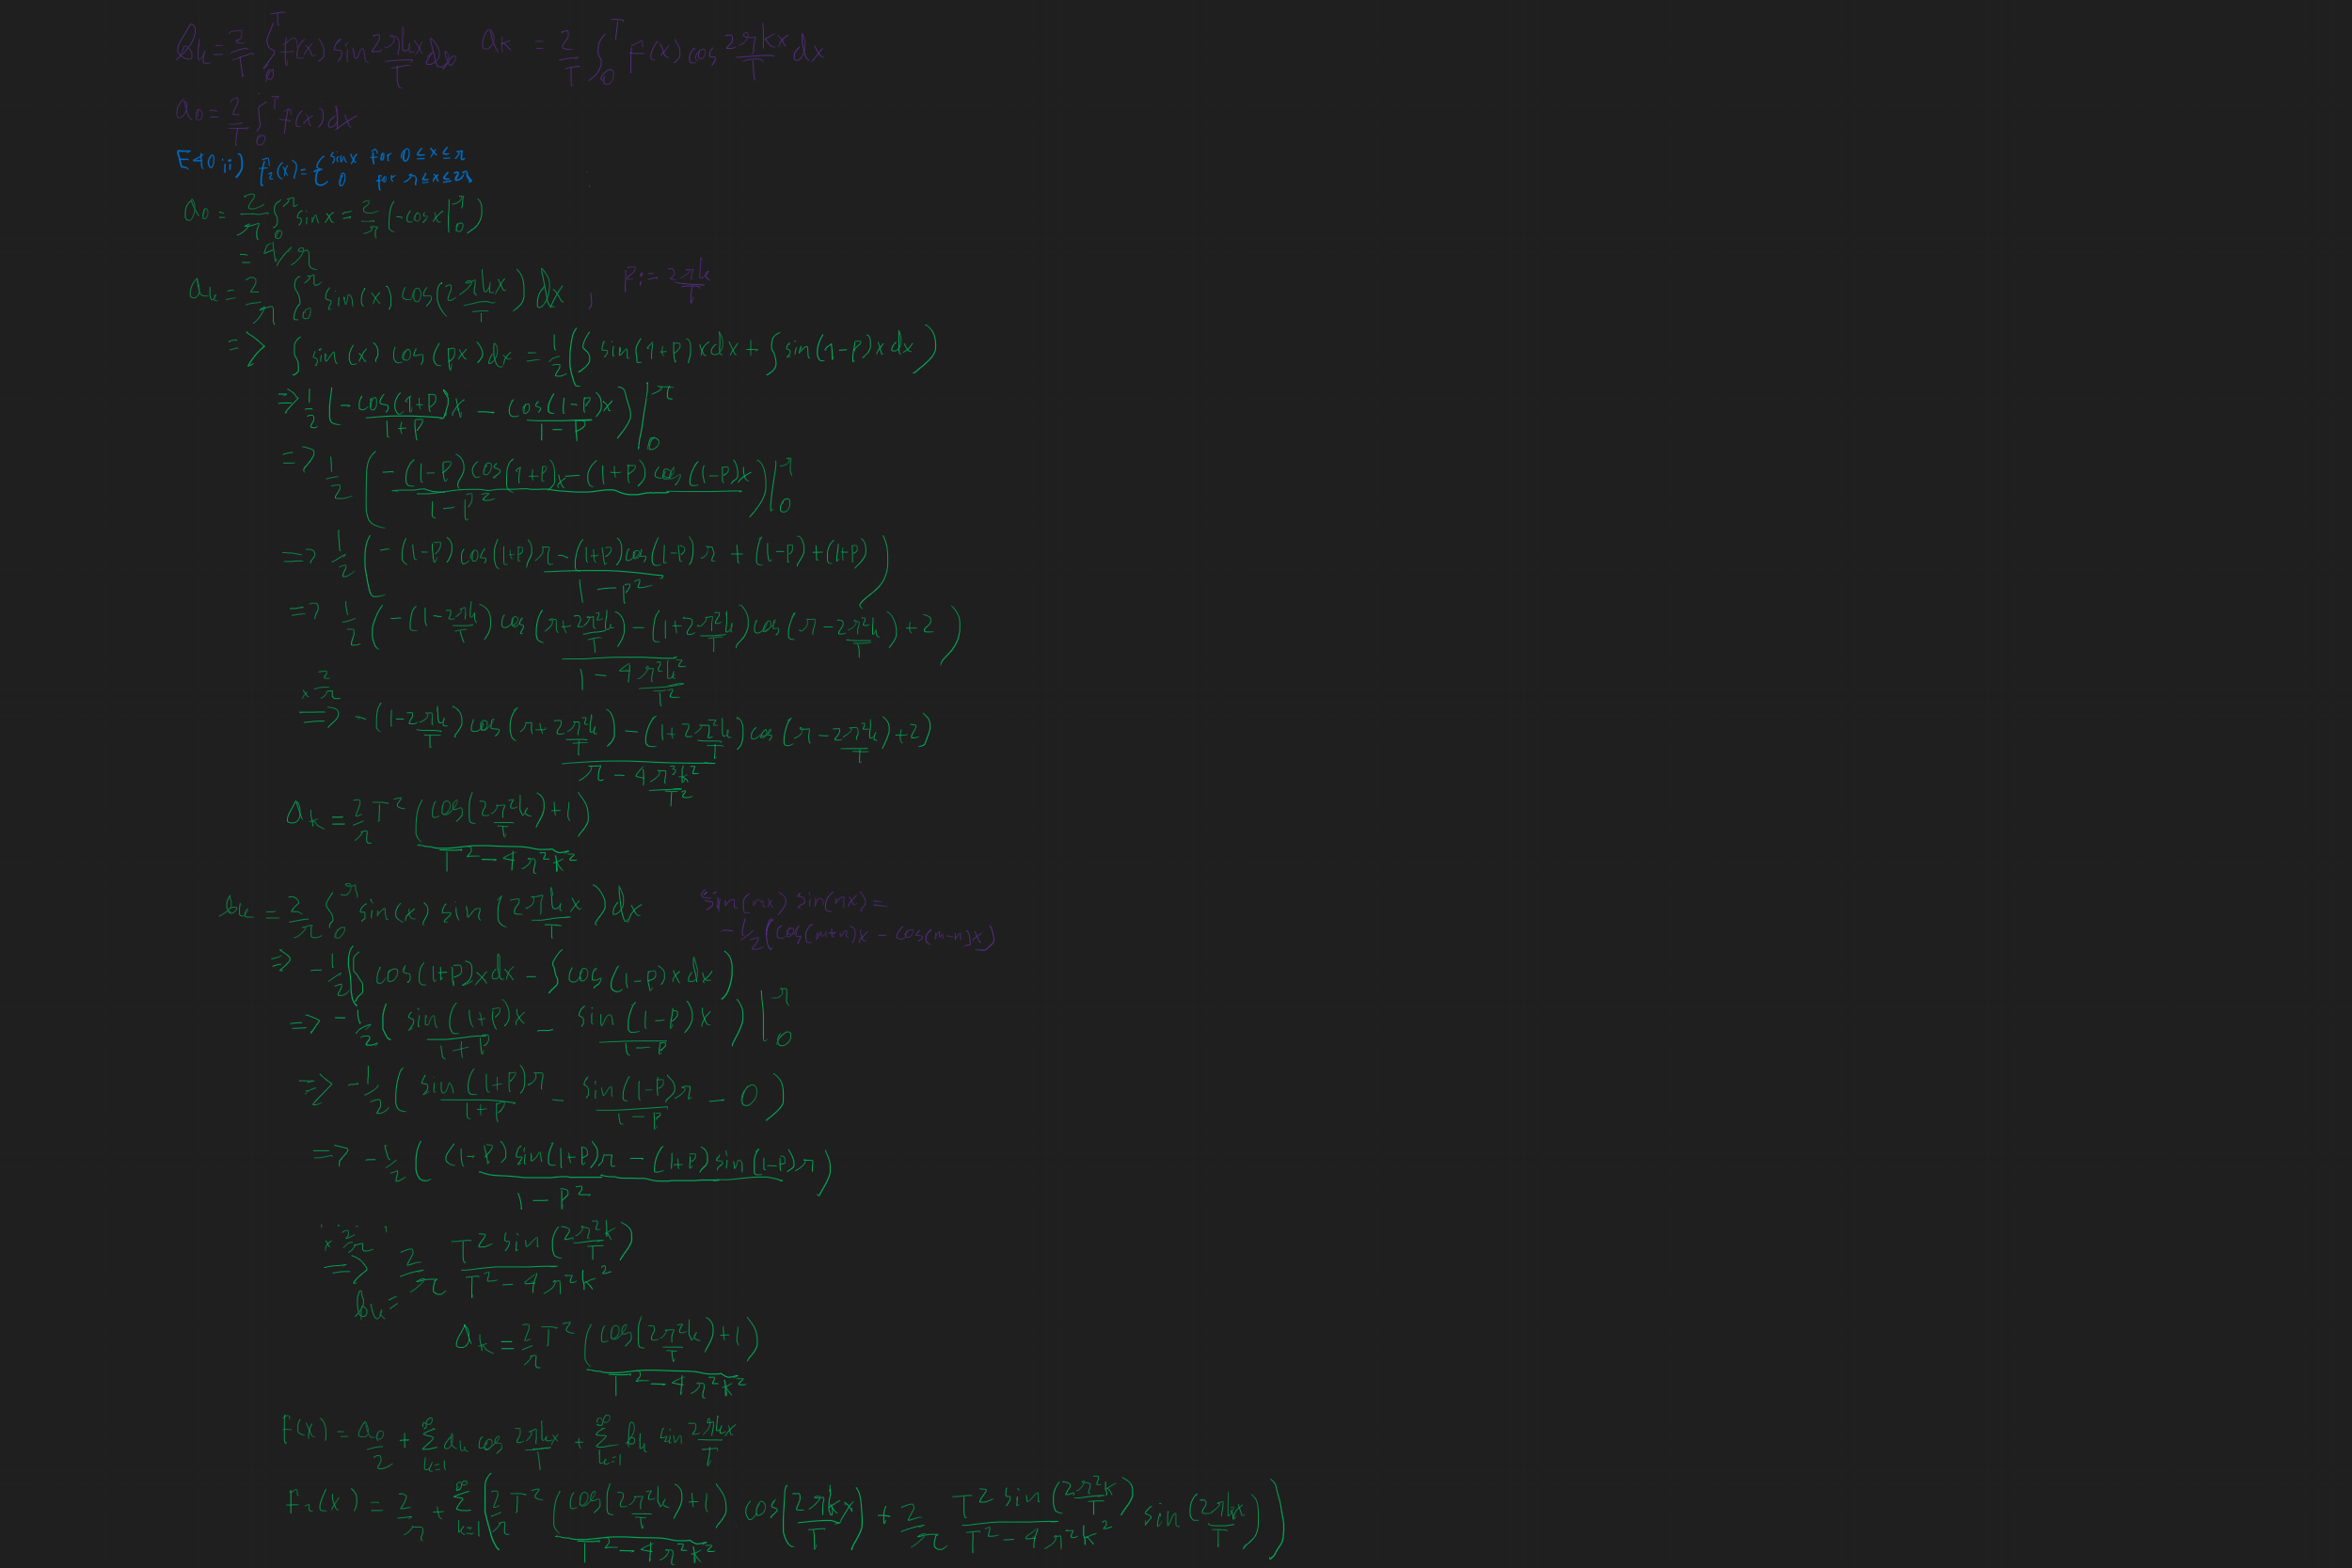 b_k = 2/T ∫_0^T f(x) sin 2πkx/T dx   a_k = 2/T ∫_0^T f(x) cos 2πkx/T dx
a_0 = 2/T ∫_0^T f(x) dx
E40 ii) f_2(x) = { sin x for 0 ≤ x ≤ π
0 for π ≤ x ≤ 2π
a_0 = 2/π ∫_0^π sin x = 2/π (-cos x |_0^π)
= 4/π
a_k = 2/π ∫_0^π sin(x) cos(2πkx/T) dx , p := 2πk/T
=> ∫ sin(x) cos(px) dx = 1/2 (∫ sin(1+p)x dx + ∫ sin(1-p)x dx)
=> 1/2 (-cos(1+p)x/(1+p) - cos(1-p)x/(1-p)) |_0^π
=> 1/2 ((-(1-p)cos(1+p)x - (1+p)cos(1-p)x)/(1-p²)) |_0^π
=> 1/2 ((-(1-p)cos(1+p)π - (1+p)cos(1-p)π + (1-p)+(1+p))/(1-p²))
=> 1/2 ((-(1-2πk/T) cos(π+2π²k/T) - (1+2π²k/T) cos(π-2π²k/T) + 2)/(1-4π²k²/T²))
× 2/π
=> (-(1-2πk/T) cos(π+2π²k/T) - (1+2π²k/T) cos(π-2π²k/T) + 2)/(π-4π³k²/T²)
a_k = 2/π T² (cos(2π²k/T)+1)/(T²-4π²k²)
b_k = 2/π ∫_0^π sin(x) sin(2πkx/T) dx   sin(mx) sin(nx) =
-1/2 (cos(m+n)x - cos(m-n)x)
=> -1/2 (∫ cos(1+p)x dx - ∫ cos(1-p)x dx)
=> -1/2 (sin(1+p)x/(1+p) - sin(1-p)x/(1-p)) |_0^π
=> -1/2 (sin(1+p)π/(1+p) - sin(1-p)π/(1-p) - 0)
=> -1/2 (((1-p)sin(1+p)π - (1+p)sin(1-p)π)/(1-p²))
× 2/π
=> 2/π T² sin(2π²k/T)/(T²-4π²k²)
b_k =
a_k = 2/π T² (cos(2π²k/T)+1)/(T²-4π²k²)
f(x) = a_0/2 + Σ_{k=1}^∞ a_k cos 2πkx/T + Σ_{k=1}^∞ b_k sin 2πkx/T
f_2(x) = 2/π + Σ_{k=1}^∞ (2/π T² (cos(2π²k/T)+1)/(T²-4π²k²) cos(2πkx/T) + 2/π T² sin(2π²k/T)/(T²-4π²k²) sin(2πkx/T))